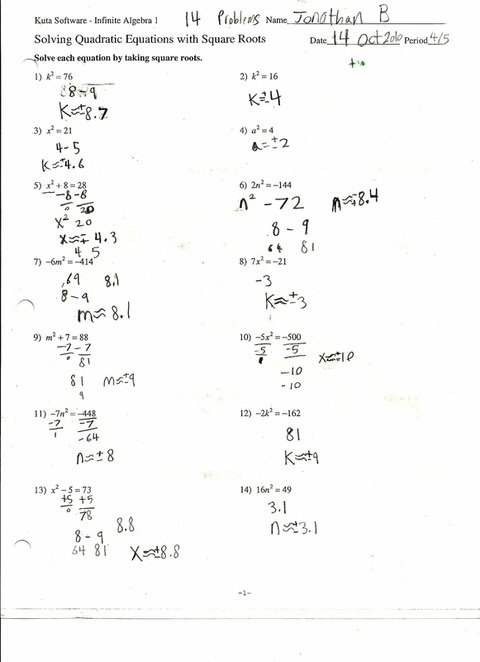 Kuta Software - Infinite Algebra 1 14 Problems Name Jonathan B
Solving Quadratic Equations with Square Roots Date 14 Oct 2010 Period 4/5
Solve each equation by taking square roots.
1) k² = 76
8 - 9
K≈±8.7
2) k² = 16
K±4
3) x² = 21
4-5
K≈±4.6
4) a² = 4
a=±2
5) x² + 8 = 28
-8 -8
0 20
x² 20
x≈± 4.3
4 5
6) 2n² = -144
n² - 72 n≈±8.4
8 - 9
64 81
7) -6m² = -414
,69 8.1
8 - 9
m≈ 8.1
8) 7x² = -21
-3
K≈±3
9) m² + 7 = 88
-7 -7
0 81
81 m≈±9
9
10) -5x² = -500
-5 -5 x≈±10
-10
-10
11) -7n² = -448
-7 -7
1 -64
n≈± 8
12) -2k² = -162
81
K≈±9
13) x² - 5 = 73
+5 +5
0 78
8.8
8 - 9
64 81 x≈±8.8
14) 16n² = 49
3.1
n≈±3.1
-1-